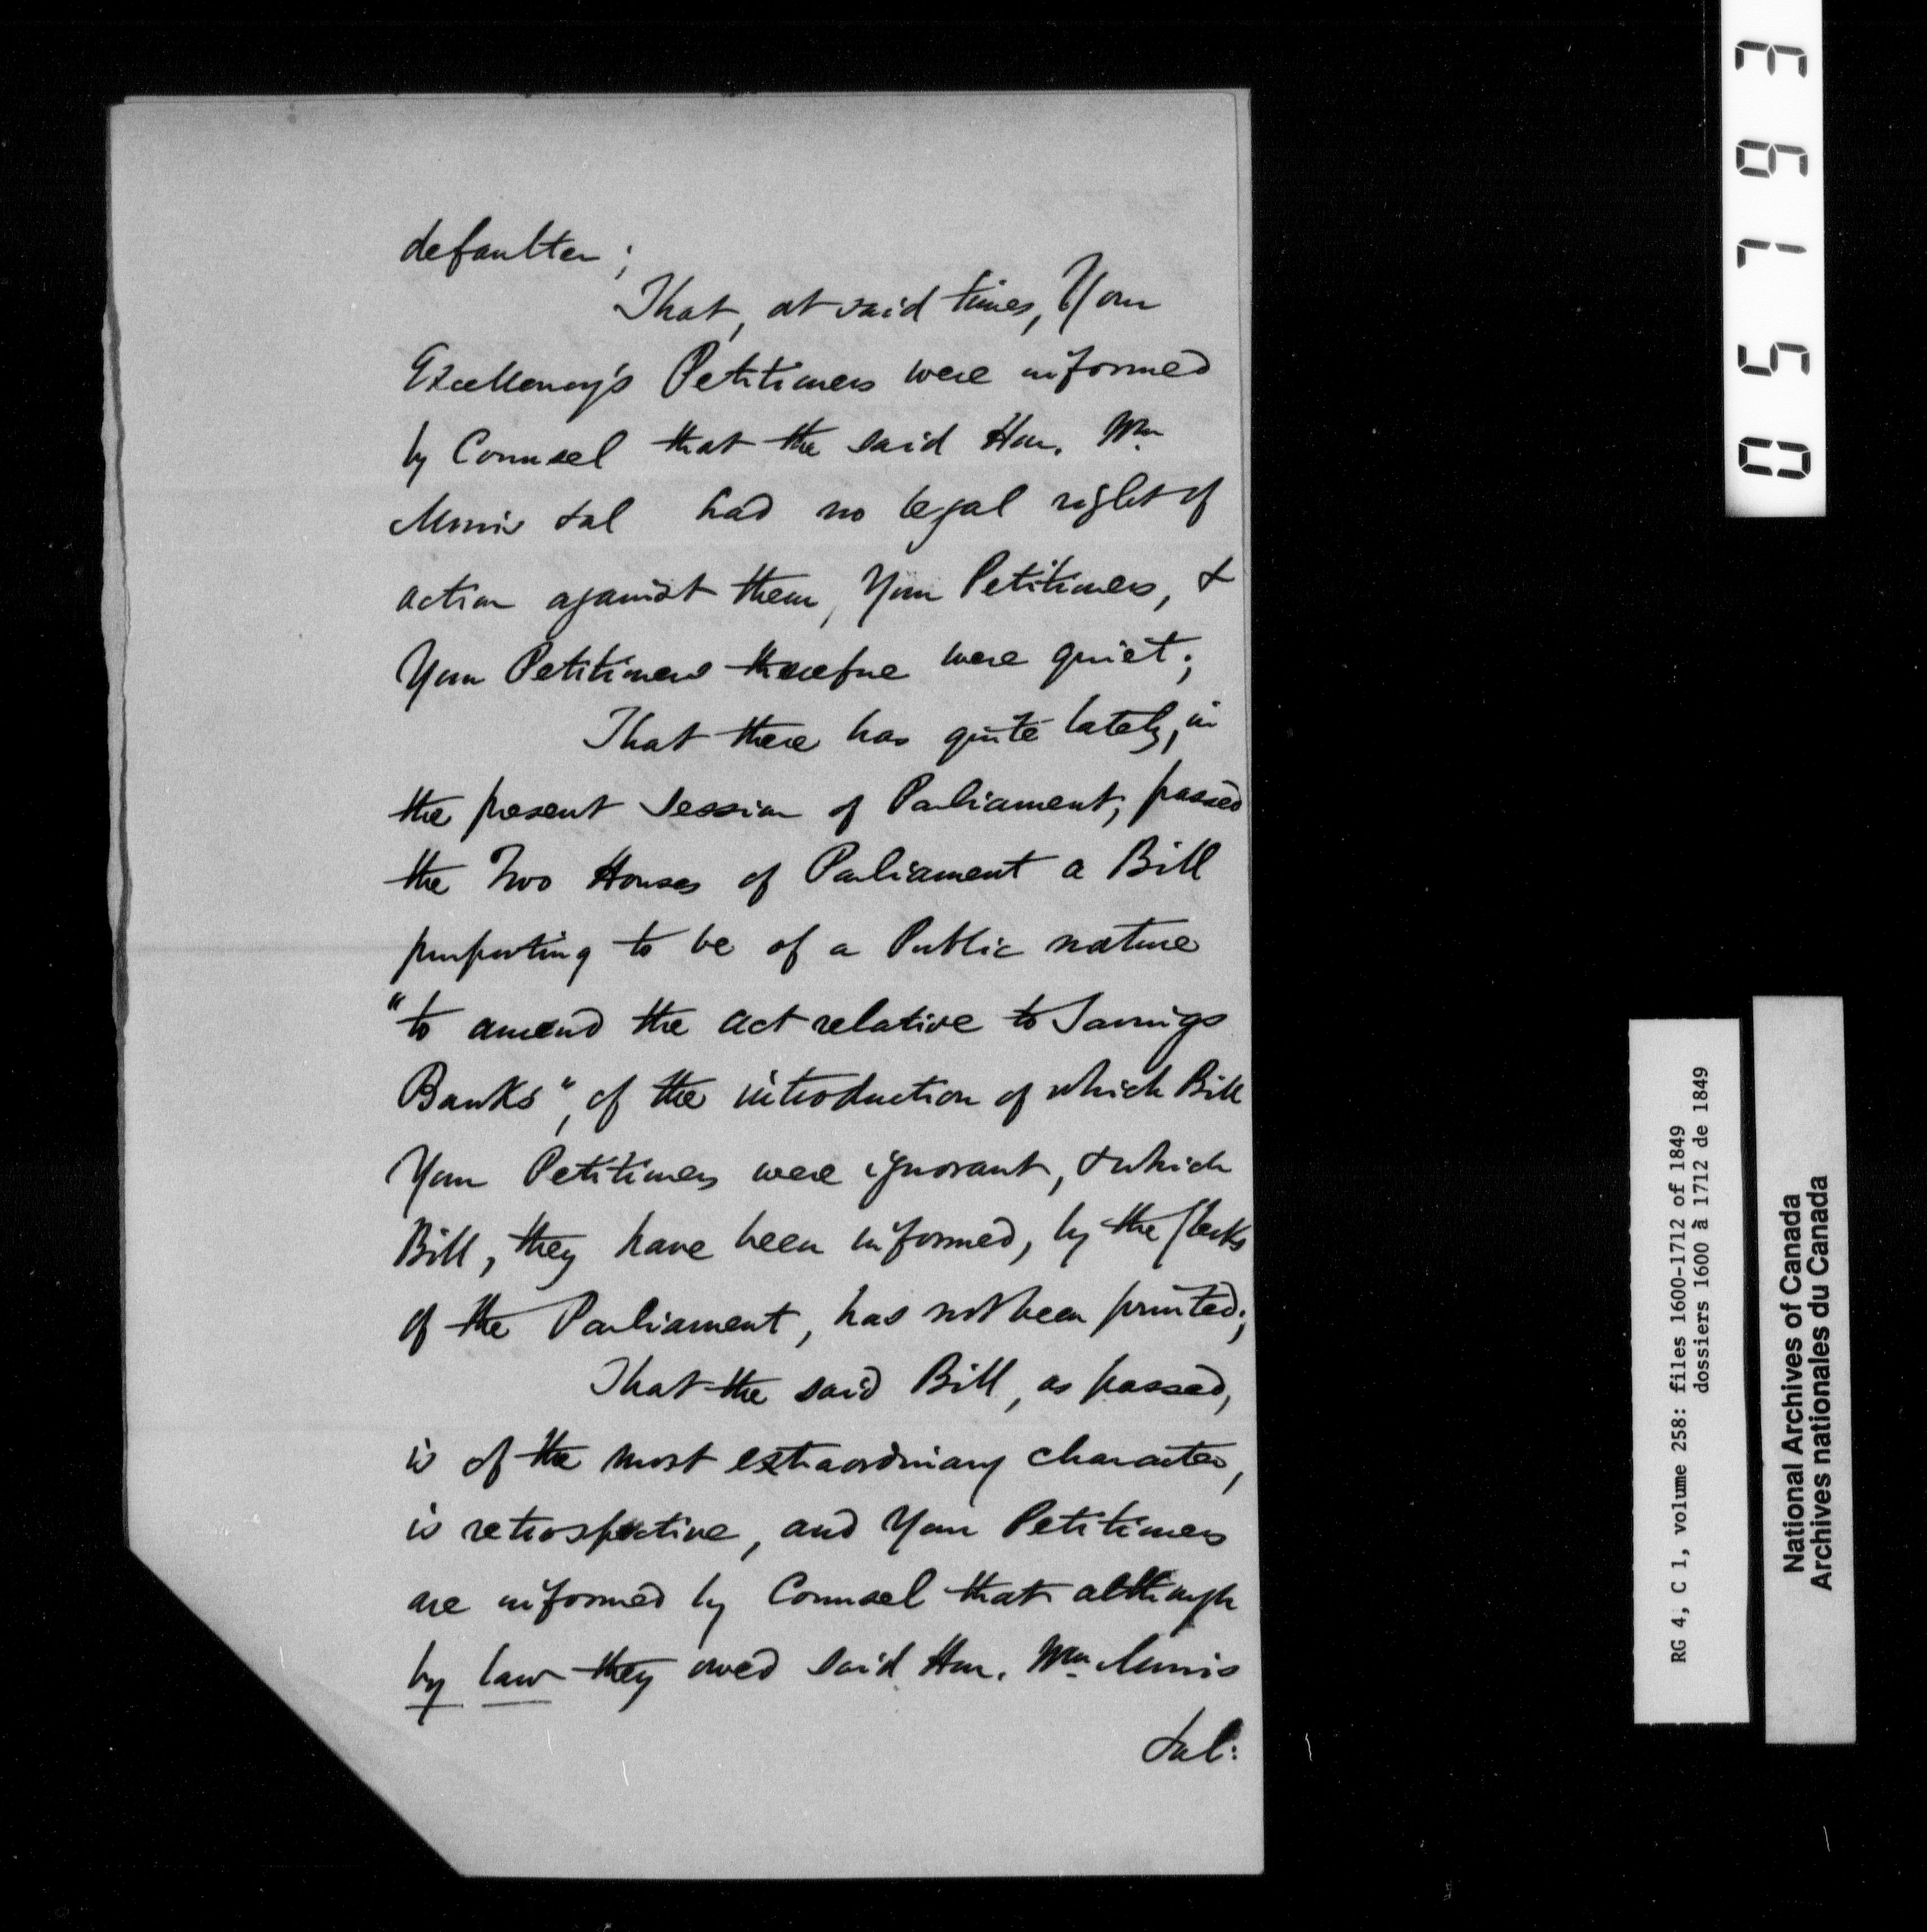 defaulter;
That, at said times, Your
Excellency's Petitioners were informed
by Counsel that the said Hon. Wm
Morris &al had no legal right of
action against them, Your Petitioners, &
Your Petitioners therefore were quiet;
That there has quite lately, in
the present Session of Parliament, passed
the Two Houses of Parliament a Bill
purporting to be of a Public nature
"to amend the act relative to Savings
Banks", of the introduction of which Bill
Your Petitioners were ignorant, & which
Bill, they have been informed, by the Clerks
of the Parliament, has not been printed;
That the said Bill, as passed,
is of the most extraordinary character,
is retrospective, and Your Petitioners
are informed by Counsel that although
by law they owed said Hon. Wm Morris
&al:
05793
RG 4, C 1, volume 258: files 1600-1712 of 1849
dossiers 1600 à 1712 de 1849
National Archives of Canada
Archives nationales du Canada